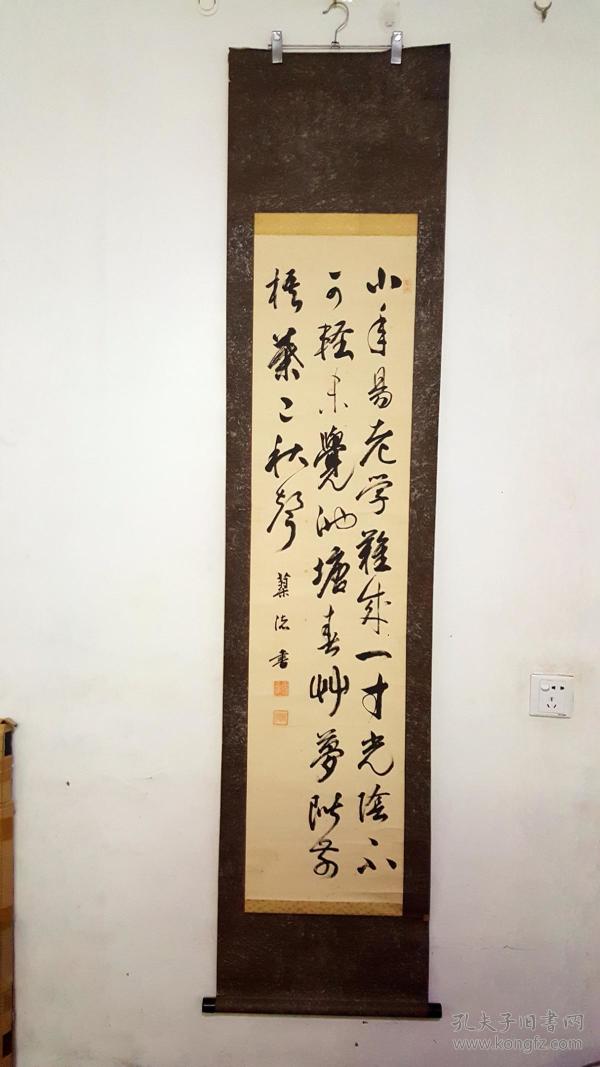 少年易老学難成一寸光陰不
可軽未覺池塘春艸夢階前
梧葉已秋聲
書
孔夫子旧书网
www.kongfz.com